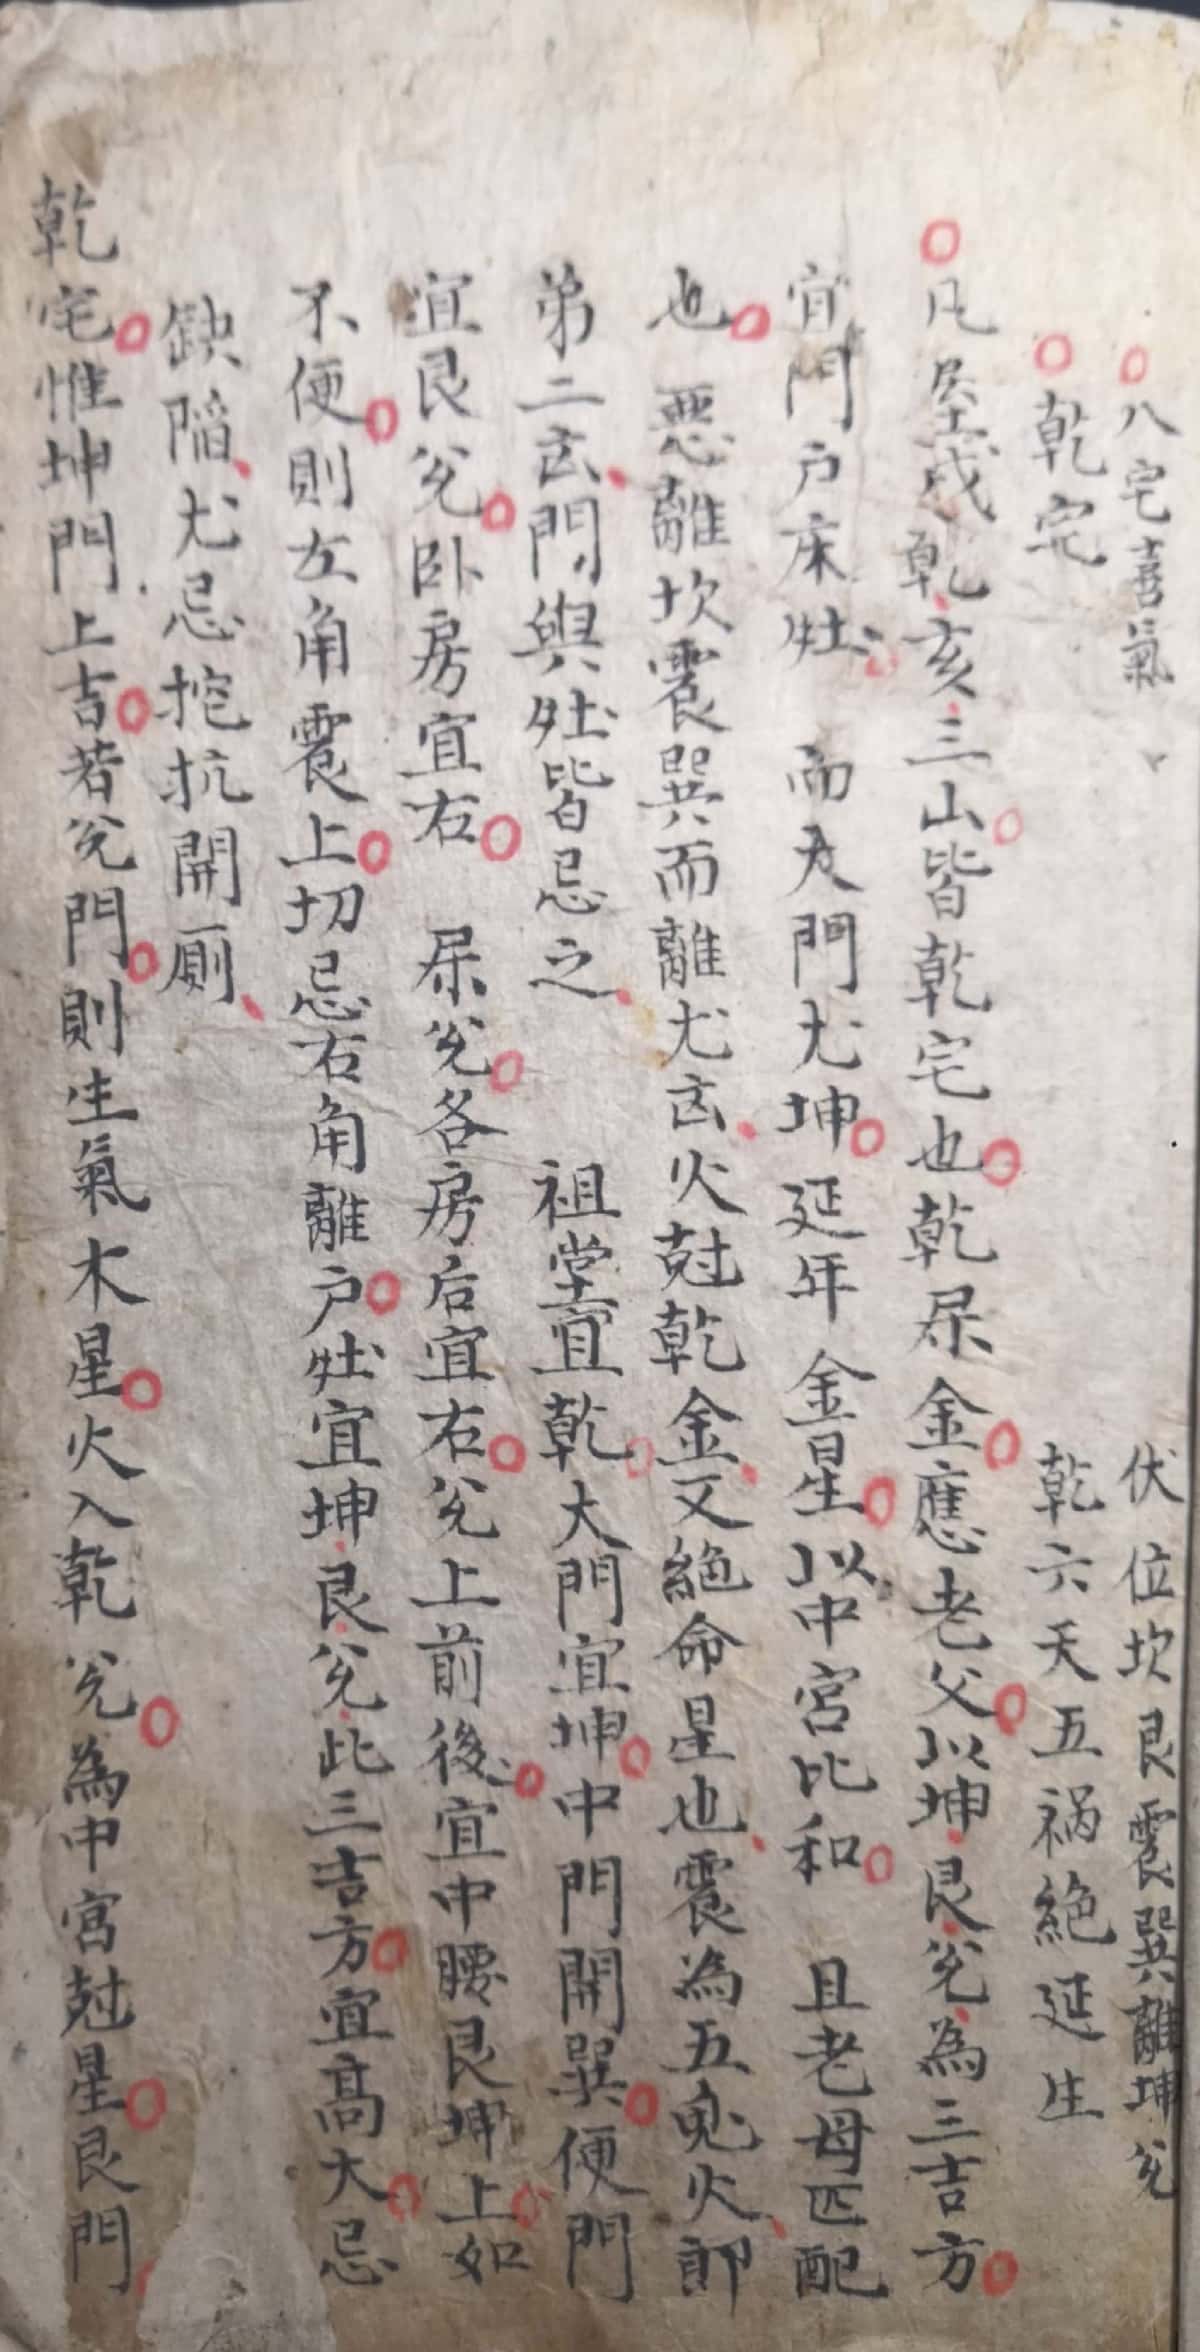 八宅喜氣 伏位坎艮震巽離坤兌
乾宅 乾六天五祸絶延生
凡坐戌乾亥三山皆乾宅也乾属金應老父以坤艮兌為三吉方
宜門户床灶 而大門尤坤延年金星以中宮比和 且老母匹配
也 惡離坎震巽而離尤凶火尅乾金又絶命星也震為五鬼火即
弟二凶門與灶皆忌之 祖堂宜乾大門宜坤中門開巽便門
宜艮兌卧房宜右 床兌各房后宜右兌上前後宜中腰艮坤上如
不便則左角震上切忌右角離户灶宜坤艮兌此三吉方宜高大忌
缺陷尤忌挖抗開厠
乾宅惟坤門上吉若兌門則生氣木星火入乾兌為中宮尅星艮門